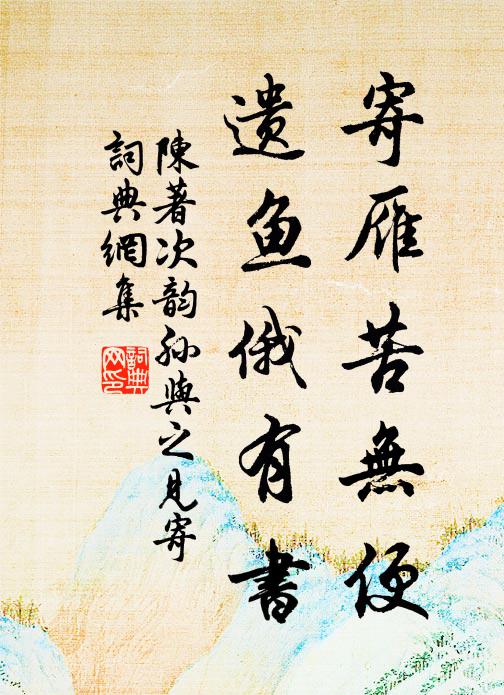 寄雁苦無便
遗鱼俄有書
陳著次韵孙與之見寄
詞典網集
詞典
网印